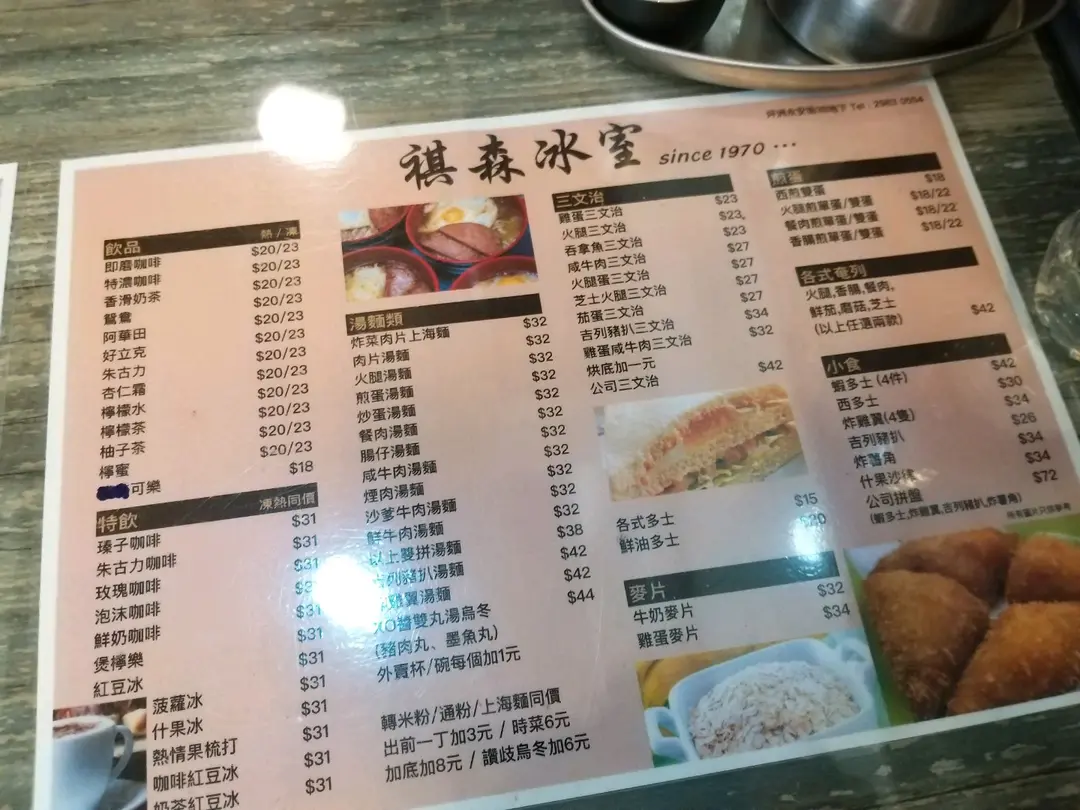 坪洲永安街38地下 Tel : 2983 0554
祺森冰室 since 1970 ···
飲品 熱 / 凍
即磨咖啡 $20/23
特濃咖啡 $20/23
香滑奶茶 $20/23
鴛鴦 $20/23
阿華田 $20/23
好立克 $20/23
朱古力 $20/23
杏仁霜 $20/23
檸檬水 $20/23
檸檬茶 $20/23
柚子茶 $20/23
檸蜜 $20/23
可樂 $18
特飲 凍熱同價
瑧子咖啡 $31
朱古力咖啡 $31
玫瑰咖啡 $31
泡沫咖啡
鮮奶咖啡 $31
煲檸樂 $31
紅豆冰 $31
菠蘿冰 $31
什果冰 $31
熱情果梳打 $31
咖啡紅豆冰 $31
奶茶紅豆冰 $31
湯麵類
炸菜肉片上海麵 $32
肉片湯麵 $32
火腿湯麵 $32
煎蛋湯麵 $32
炒蛋湯麵 $32
餐肉湯麵 $32
腸仔湯麵 $32
咸牛肉湯麵 $32
煙肉湯麵 $32
沙爹牛肉湯麵 $32
鮮牛肉湯麵 $32
以上雙拼湯麵 $38
吉列豬扒湯麵 $42
雞翼湯麵 $42
XO醬雙丸湯烏冬 $44
(豬肉丸、墨魚丸)
外賣杯/碗每個加1元
轉米粉/通粉/上海麵同價
出前一丁加3元 / 時菜6元
加底加8元 / 讚歧烏冬加6元
三文治
雞蛋三文治 $23
火腿三文治 $23
吞拿魚三文治 $23
咸牛肉三文治 $27
火腿蛋三文治 $27
芝士火腿三文治 $27
茄蛋三文治 $27
吉列豬扒三文治 $34
雞蛋咸牛肉三文治 $32
烘底加一元
公司三文治 $42
各式多士 $15
鮮油多士 $20
麥片
牛奶麥片 $32
雞蛋麥片 $34
煎蛋
西煎雙蛋 $18
火腿煎單蛋/雙蛋 $18/22
餐肉煎單蛋/雙蛋 $18/22
香腸煎單蛋/雙蛋 $18/22
各式奄列
火腿,香腸,餐肉,
鮮茄,磨菇,芝士 $42
(以上任選兩款)
小食
蝦多士 (4件) $42
西多士 $30
炸雞翼(4隻) $34
吉列豬扒 $26
炸薯角 $34
什果沙律 $34
公司拼盤 $72
(蝦多士,炸雞翼,吉列豬扒,炸薯角)
所有圖片只供參考